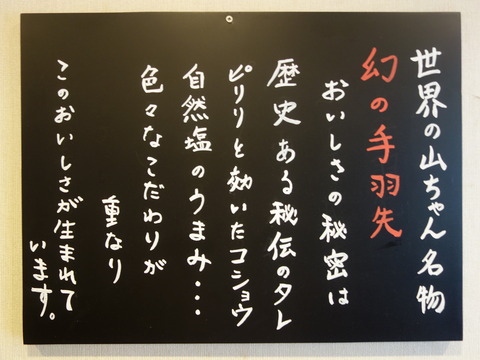 世界の山ちゃん名物
幻の手羽先
おいしさの秘密は
歴史ある秘伝のタレ
ピリリと効いたコショウ
自然塩のうまみ・・・
色々なこだわりが
重なり
このおいしさが生まれて
います。